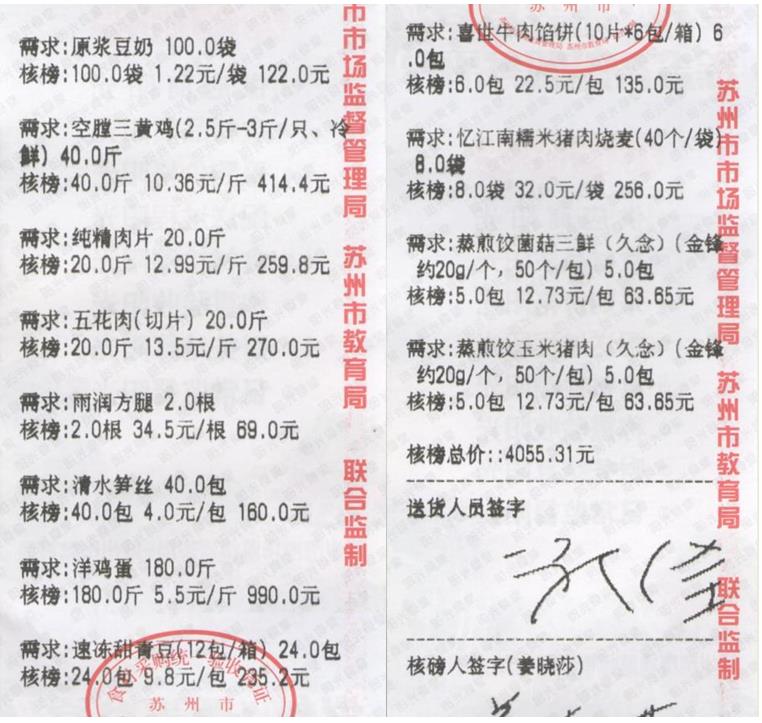 需求:原浆豆奶 100.0袋
核榜:100.0袋 1.22元/袋 122.0元
需求:空膛三黄鸡(2.5斤-3斤/只、冷
鲜) 40.0斤
核榜:40.0斤 10.36元/斤 414.4元
需求:纯精肉片 20.0斤
核榜:20.0斤 12.99元/斤 259.8元
需求:五花肉(切片) 20.0斤
核榜:20.0斤 13.5元/斤 270.0元
需求:雨润方腿 2.0根
核榜:2.0根 34.5元/根 69.0元
需求:清水笋丝 40.0包
核榜:40.0包 4.0元/包 160.0元
需求:洋鸡蛋 180.0斤
核榜:180.0斤 5.5元/斤 990.0元
需求:速冻甜青豆(12包/箱) 24.0包
核榜:24.0包 9.8元/包 235.2元
苏州市
市市场监督管理局 苏州市教育局 联合监制
苏州市
需求:喜世牛肉馅饼(10片*6包/箱) 6
.0包
核榜:6.0包 22.5元/包 135.0元
需求:忆江南糯米猪肉烧麦(40个/袋)
8.0袋
核榜:8.0袋 32.0元/袋 256.0元
需求:蒸煎饺菌菇三鲜(久念)(金锋
约20g/个，50个/包) 5.0包
核榜:5.0包 12.73元/包 63.65元
需求:蒸煎饺玉米猪肉(久念)(金锋
约20g/个，50个/包) 5.0包
核榜:5.0包 12.73元/包 63.65元
核榜总价::4055.31元
送货人员签字
核磅人签字(姜晓莎)
苏州市市场监督管理局 苏州市教育局 联合监制